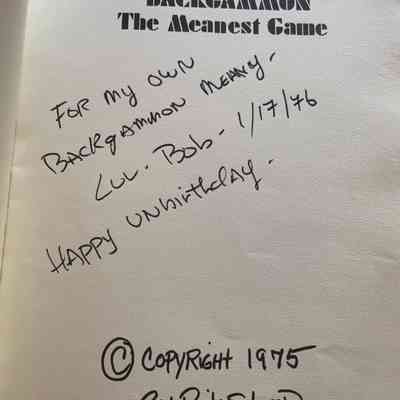 BACKGAMMON
The Meanest Game
FOR MY OWN
BACKGAMMON MEANY-
Luv. Bob- 1/17/76
HAPPY UNbirthday.
© COPYRIGHT 1975